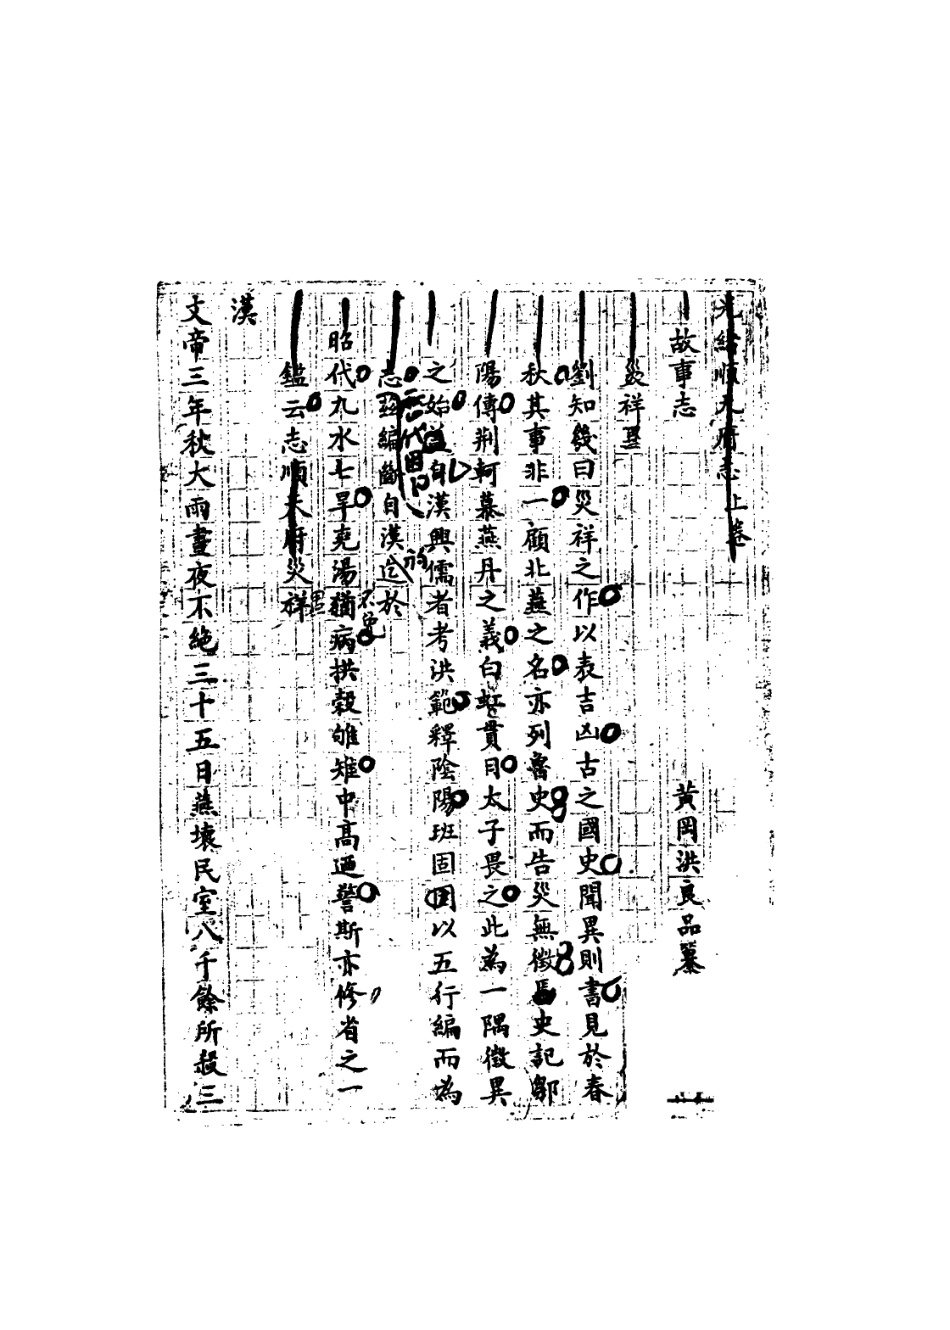 光緒順天府志上卷
故事志 黃岡洪良品纂
災祥畧
劉知幾曰災祥之作以表吉凶古之國史聞異則書見於春
秋其事非一顧北燕之名亦列魯史而告災無徵史記鄒
陽傳荆軻慕燕丹之義白虹貫日太子畏之此為一隅徵異
之始自漢興儒者考洪範釋陰陽班固因以五行編而為
志茲編斷自漢迄於
昭代九水七旱堯湯猶病拱榖雊雉中高迺警斯亦修省之一
鑑云志順天府災祥
漢
文帝三年秋大雨晝夜不絶三十五日燕壞民室八千餘所殺三